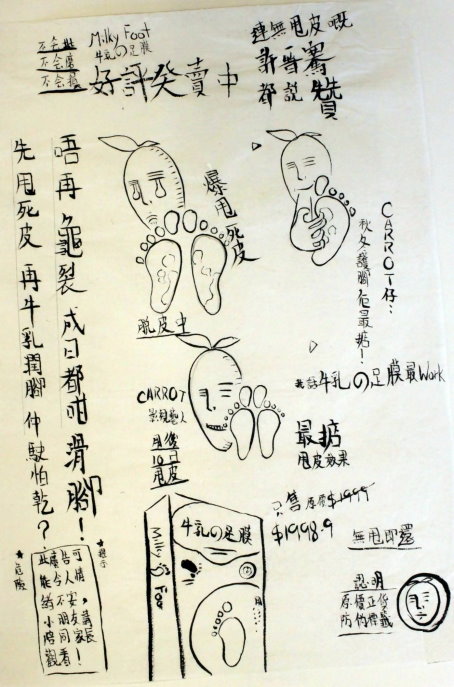 不会痛
不会癢
Milky Foot
牛乳の足膜
好評發賣中
連無甩皮嘅
許晋騫
都說讚
唔再龜裂 成日都咁滑腳！
先甩死皮 再牛乳潤腳 仲駛怕乾？
爆甩死皮
脫皮中
CARROT仔：
秋冬護腳佢最掂！
CARROT
影視藝人
用後
10日
甩皮
我話牛乳の足膜最Work
最掂
甩皮效果
只售 原價$1999
$1998.9
無甩即還
認明
原價正貨
防偽標籤
牛乳の足膜
Milky Foot
★危險
★提示
此廣告可
能令人情
緒不安，請
小朋友家長
陪同觀看！